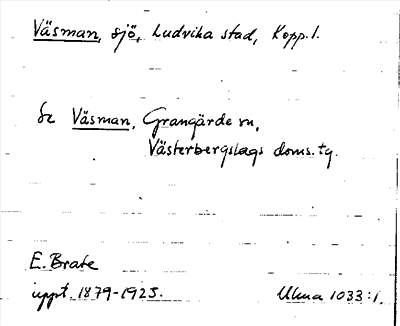 Väsman, sjö, Ludvika stad, Kopp. l.
Se Väsman, Grangärde sn,
Västerbergslags doms. tg.
E. Brate
uppt. 1879-1925.
Ulma 1033:1.